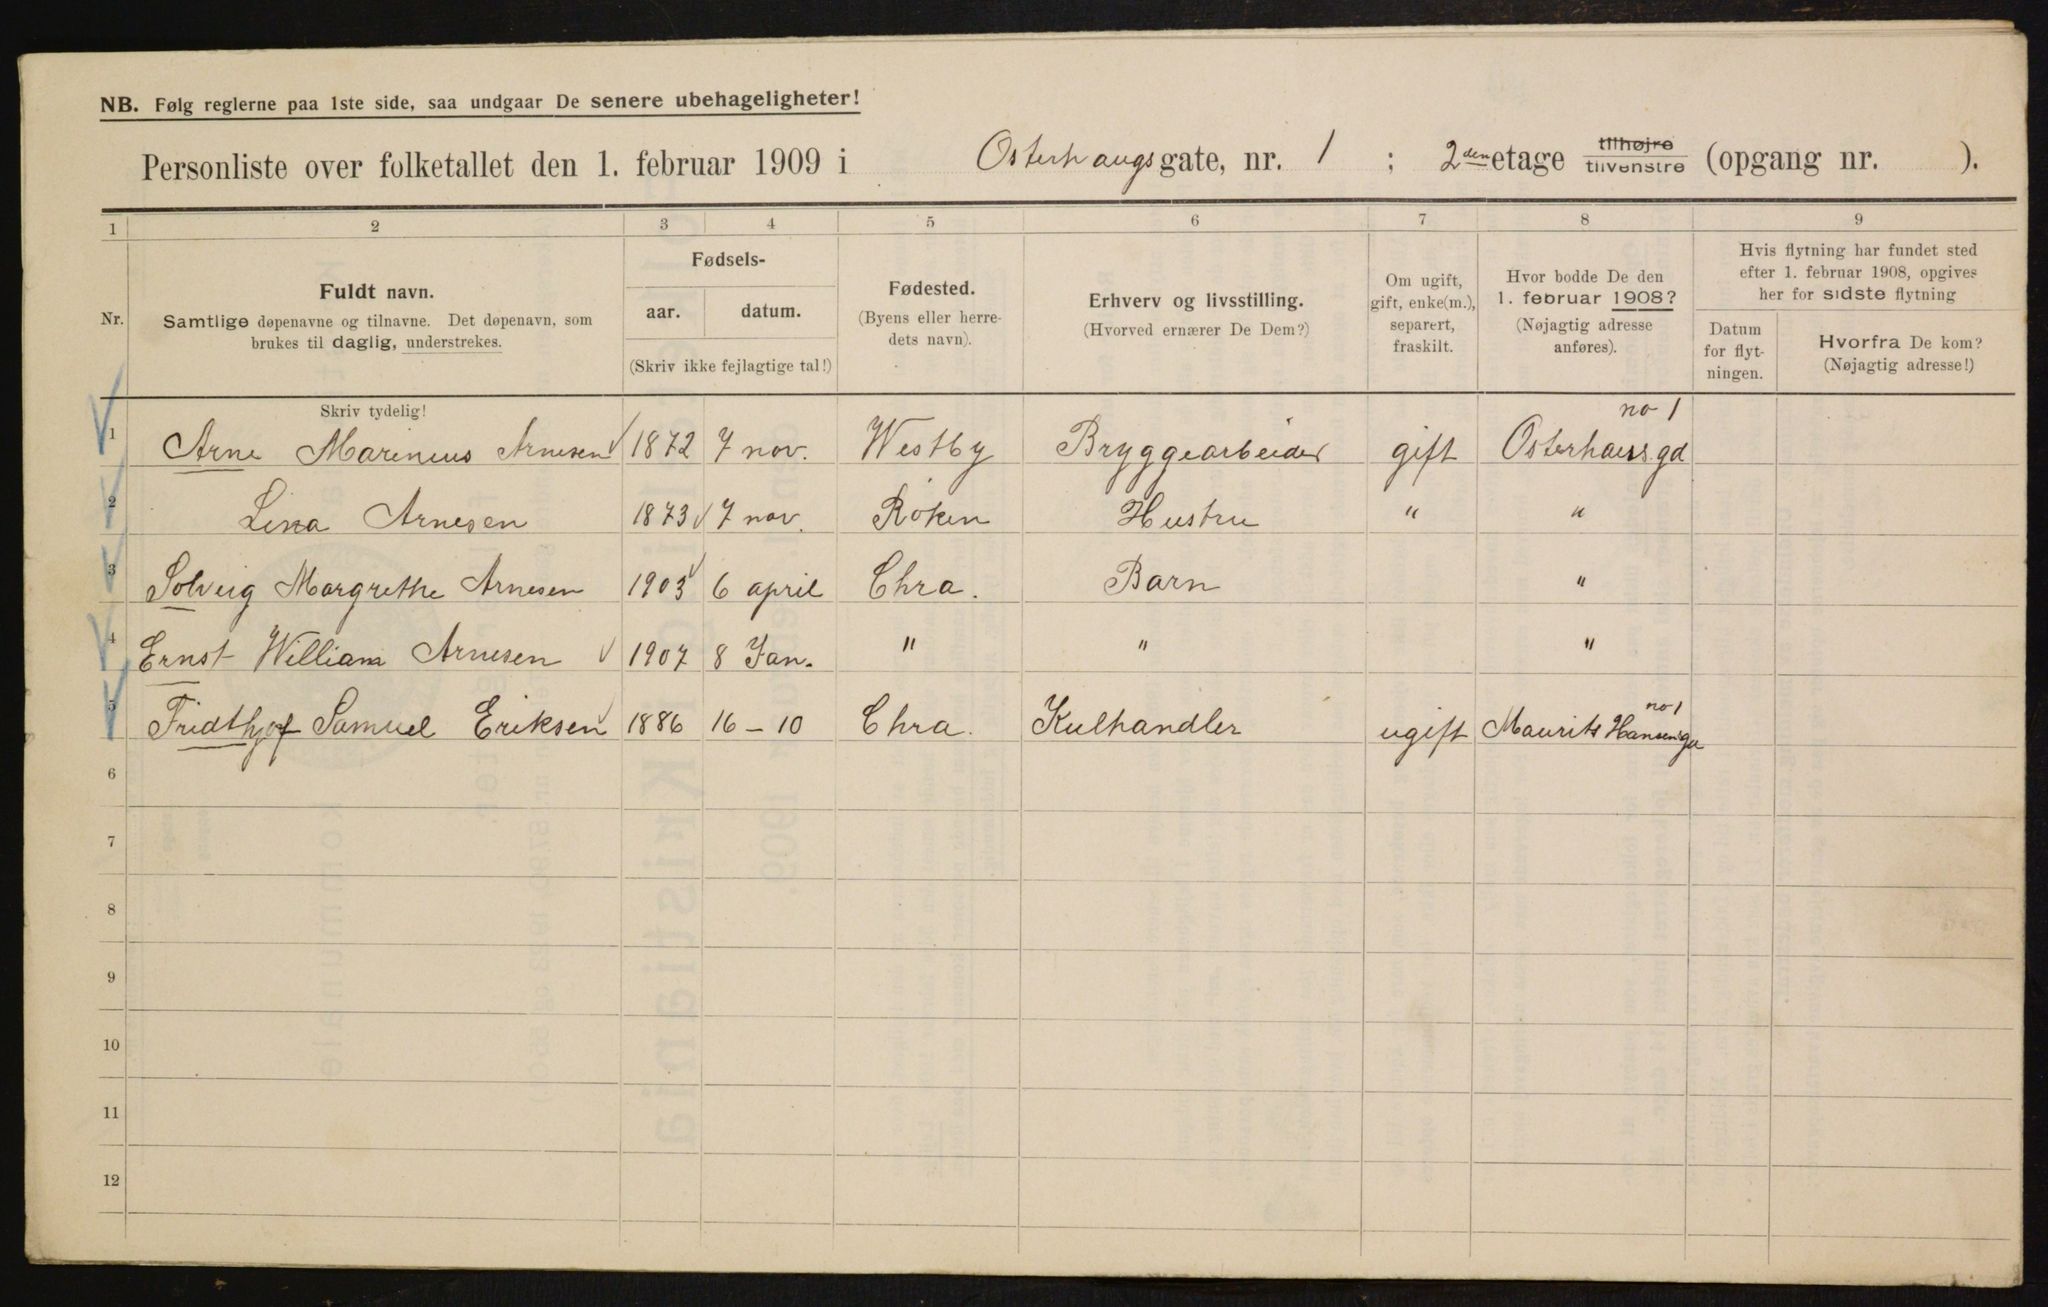 NB. Følg reglerne paa 1ste side, saa undgaar De senere ubehageligheter!
Personliste over folketallet den 1. februar 1909 i Osterhaugsgate, nr. 1 ; 2den etage tilhøjre tilvenstre (opgang nr. ).
1 2 3 4 5 6 7 8 9
Nr.
Fuldt navn.
Samtlige døpenavne og tilnavne. Det døpenavn, som
brukes til daglig, understrekes.
Fødsels-
aar. datum.
(Skriv ikke fejlagtige tal!)
Fødested.
(Byens eller herre-
dets navn).
Erhverv og livsstilling.
(Hvorved ernærer De Dem?)
Om ugift,
gift, enke(m.),
separert,
fraskilt.
Hvor bodde De den
1. februar 1908?
(Nøjagtig adresse
anføres).
Hvis flytning har fundet sted
efter 1. februar 1908, opgives
her for sidste flytning
Datum
for flyt-
ningen.
Hvorfra De kom?
(Nøjagtig adresse!)
Skriv tydelig!
no 1
1 Arne Marenius Arnesen 1872 7 nov. Westby Bryggearbeider gift Osterhausgd
2 Lina Arnesen 1873 7 nov. Röken Hustru " "
3 Solveig Margrethe Arnesen 1903 6 april Chra. Barn "
4 Ernst William Arnesen 1907 8 Jan. " " "
no 1
5 Fridthjof Samuel Eriksen 1886 16-10 Chra. Kulhandler ugift Maurits Hansensga
6
7
8
9
10
11
12